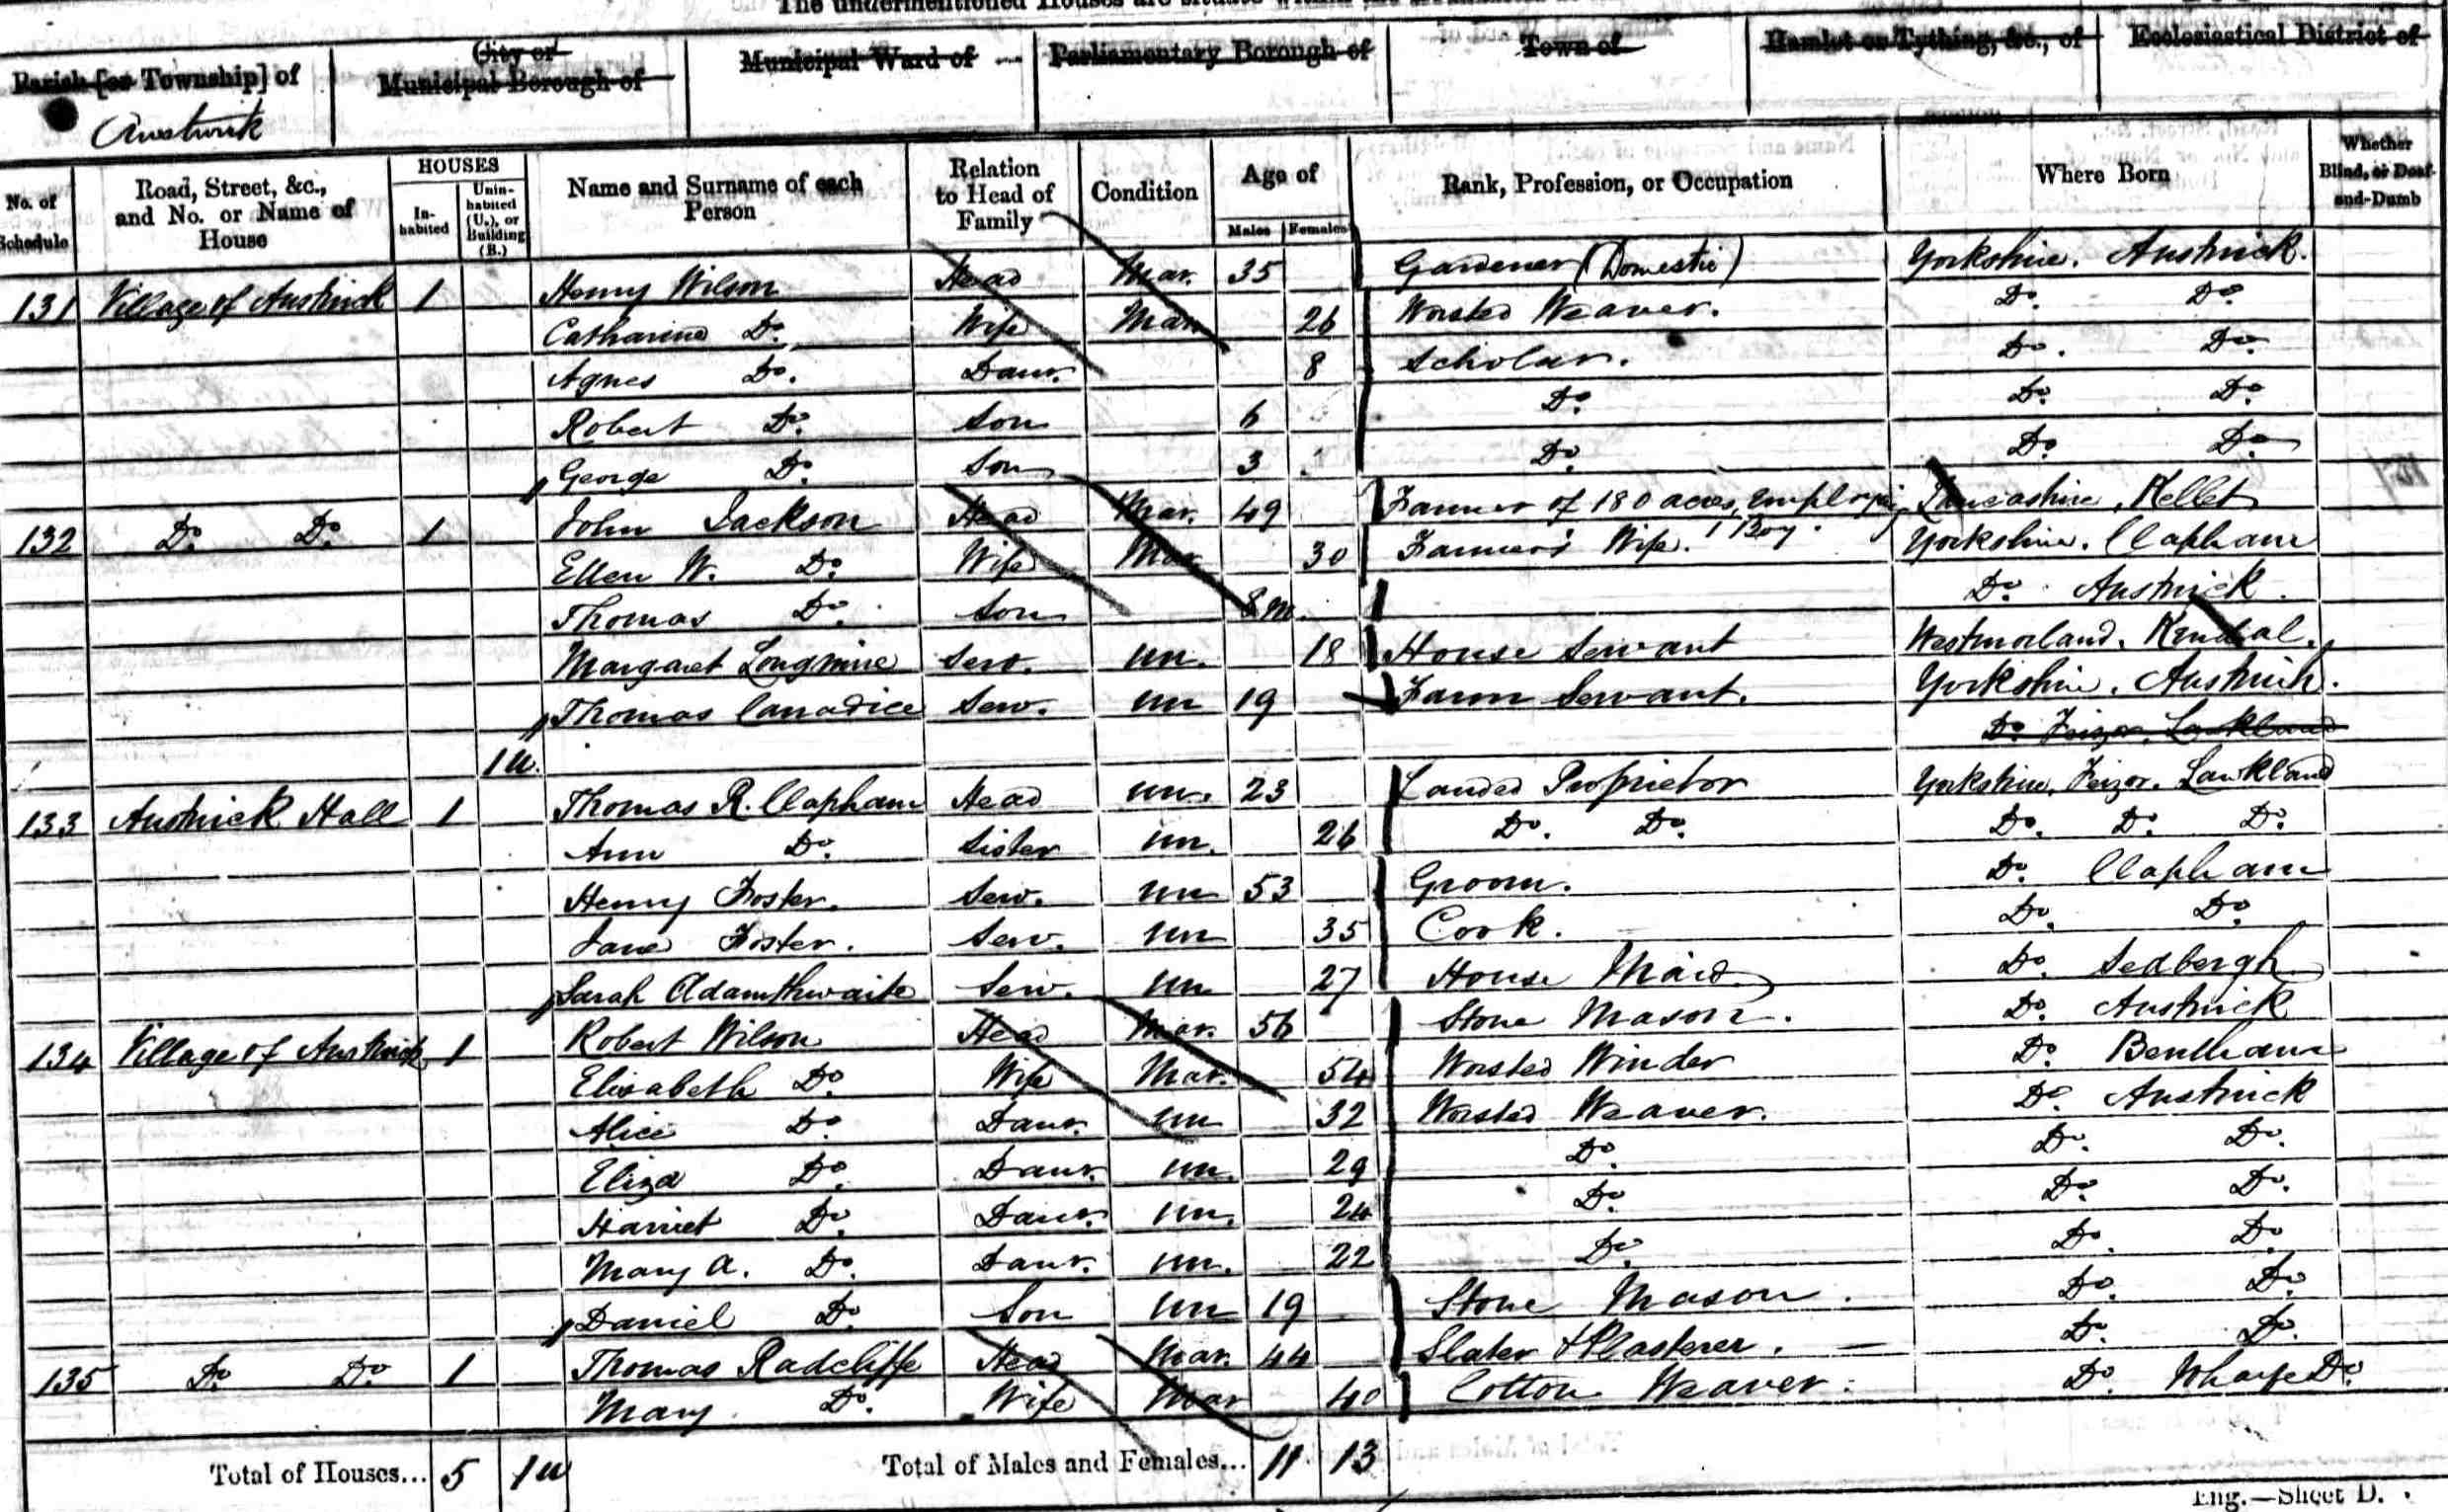 The undermentioned Houses are situate within the
Parish [or Township] of
City or Municipal Borough of
Municipal Ward of
Parliamentary Borough of
Town of
Hamlet or Tything, &c., of
Ecclesiastical District of
Austwick
No. of Schedule
Road, Street, &c., and No. or Name of House
HOUSES
Inhabited
Uninhabited (U.), or Building (B.)
Name and Surname of each Person
Relation to Head of Family
Condition
Age of
Males
Females
Rank, Profession, or Occupation
Where Born
Whether Blind, or Deaf-and-Dumb
131 Village of Austwick 1 Henry Wilson Head Mar. 35 Gardener (Domestic) Yorkshire. Austwick.
Catharine Do. Wife Mar 26 Worsted Weaver. Do. Do.
Agnes Do. Daur. 8 Scholar. Do. Do.
Robert Do. Son 6 Do. Do. Do.
George Do. Son 3 Do. Do. Do.
132 Do. Do. 1 John Jackson Head Mar. 49 Farmer of 180 acres, employing 1 Boy. Lancashire, Kellet
Ellen W. Do. Wife Mar 30 Farmer's Wife. Yorkshire. Clapham
Thomas Do. Son 8m. Do. Austwick.
Margaret Longmire Serv. Un. 18 House Servant Westmorland. Kendal.
Thomas Canadice Serv. Un 19 Farm Servant. Yorkshire. Austwick.
1U. Do. Feizor, Lawkland
133 Austwick Hall 1 Thomas R. Clapham Head Un. 23 Landed Proprietor Yorkshire, Feizor. Lawkland
Ann Do. Sister Un. 26 Do. Do. Do. Do. Do.
Henry Foster. Serv. Un 53 Groom. Do. Clapham
Jane Foster. Serv. Un 35 Cook. Do. Do.
Sarah Adamthwaite Serv. Un 27 House Maid Do. Sedbergh
134 Village of Austwick 1 Robert Wilson Head Mar. 56 Stone Mason. Do. Austwick
Elisabeth Do. Wife Mar. 54 Worsted Winder Do. Bentham
Alice Do. Daur. Un 32 Worsted Weaver. Do. Austwick
Eliza Do. Daur. Un. 29 Do. Do. Do.
Harriet Do. Daur. Un. 24 Do. Do. Do.
Mary A. Do. Daur. Un. 22 Do. Do. Do.
Daniel Do. Son Un 19 Stone Mason. Do. Do.
135 Do. Do. 1 Thomas Radcliffe Head Mar. 44 Slater & Plasterer. Do. Do.
Mary Do. Wife Mar 40 Cotton Weaver. Do. Wharfe Do.
Total of Houses... 5 1U Total of Males and Females... 11 13
Eng.—Sheet D.